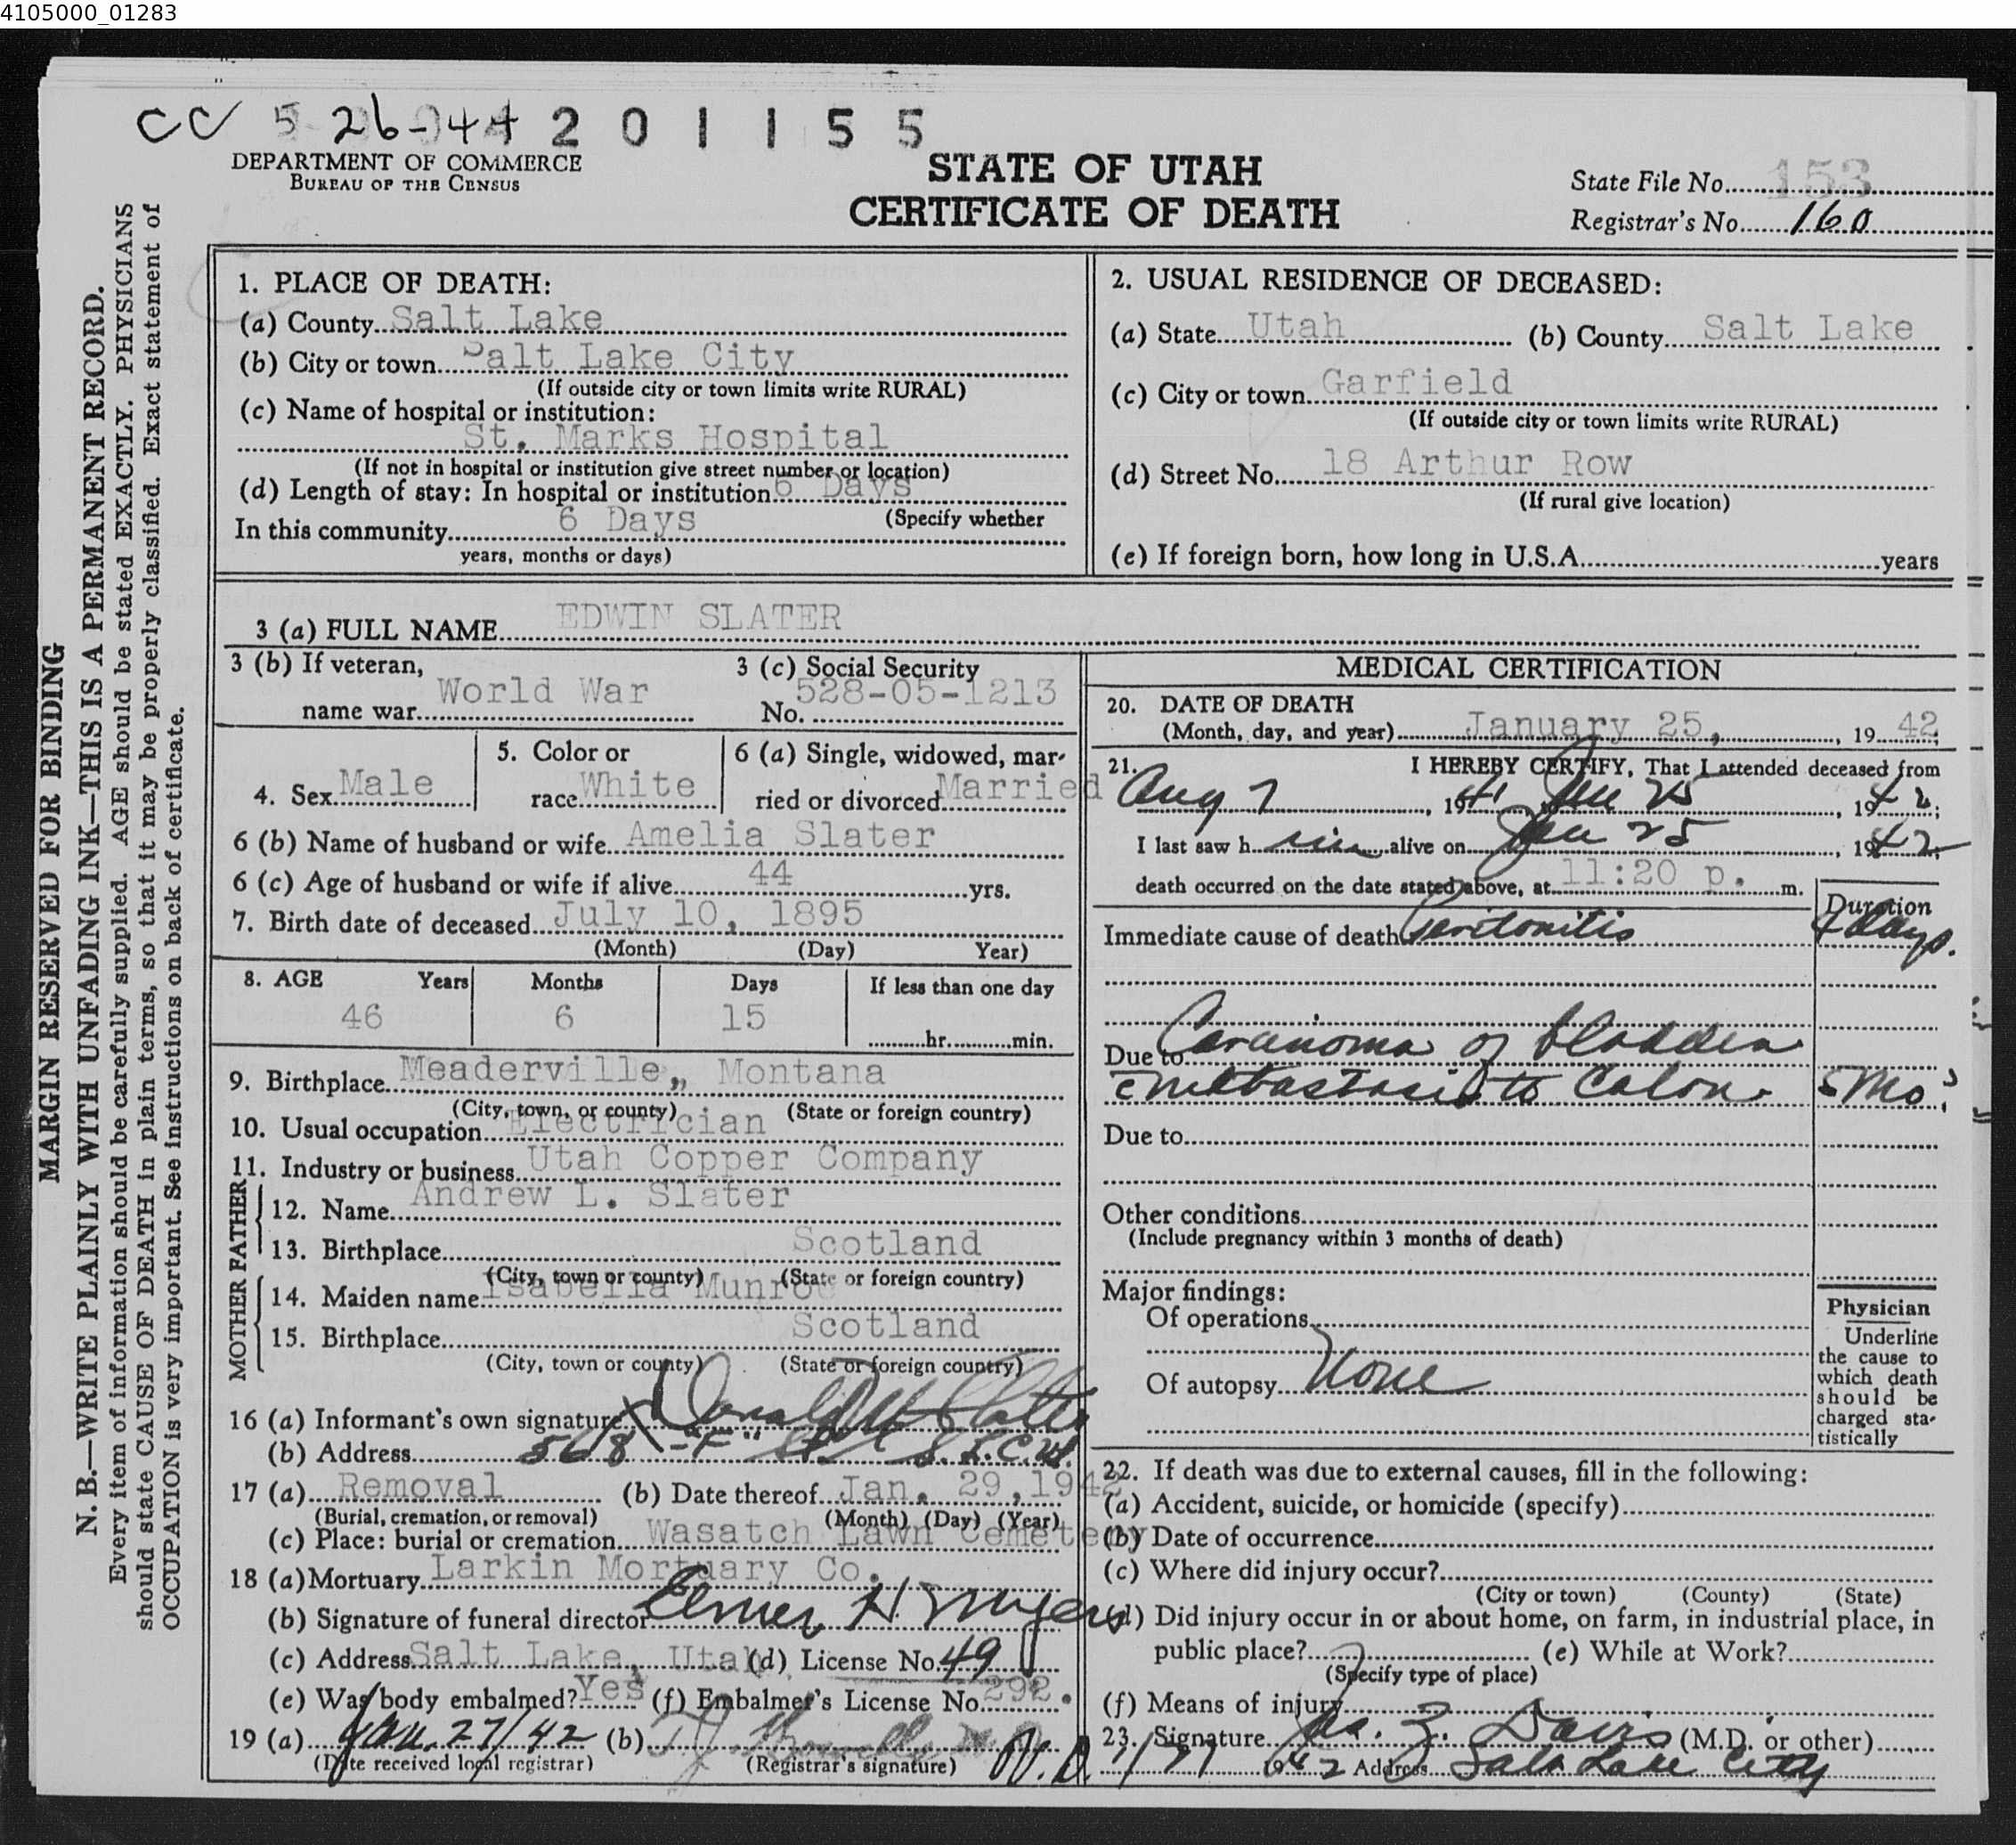 4105000_01283
CC 5 26-44 201155
DEPARTMENT OF COMMERCE
BUREAU OF THE CENSUS
STATE OF UTAH
CERTIFICATE OF DEATH
State File No. 153
Registrar's No. 160
MARGIN RESERVED FOR BINDING
N. B.—WRITE PLAINLY WITH UNFADING INK—THIS IS A PERMANENT RECORD.
Every item of information should be carefully supplied. AGE should be stated EXACTLY. PHYSICIANS
should state CAUSE OF DEATH in plain terms, so that it may be properly classified. Exact statement of
OCCUPATION is very important. See instructions on back of certificate.
1. PLACE OF DEATH:
(a) County Salt Lake
(b) City or town Salt Lake City
(If outside city or town limits write RURAL)
(c) Name of hospital or institution:
St. Marks Hospital
(If not in hospital or institution give street number or location)
(d) Length of stay: In hospital or institution 6 Days
In this community 6 Days (Specify whether
years, months or days)
2. USUAL RESIDENCE OF DECEASED:
(a) State Utah (b) County Salt Lake
(c) City or town Garfield
(If outside city or town limits write RURAL)
(d) Street No. 18 Arthur Row
(If rural give location)
(e) If foreign born, how long in U.S.A. years
3 (a) FULL NAME EDWIN SLATER
3 (b) If veteran,
name war World War
3 (c) Social Security
No. 528-05-1213
4. Sex Male
5. Color or
race White
6 (a) Single, widowed, mar-
ried or divorced Married
6 (b) Name of husband or wife Amelia Slater
6 (c) Age of husband or wife if alive 44 yrs.
7. Birth date of deceased July 10, 1895
(Month) (Day) Year)
8. AGE Years Months Days If less than one day
46 6 15 hr. min.
9. Birthplace Meaderville,, Montana
(City, town, or county) (State or foreign country)
10. Usual occupation Electrician
11. Industry or business Utah Copper Company
FATHER
12. Name Andrew L. Slater
13. Birthplace Scotland
(City, town or county) (State or foreign country)
MOTHER
14. Maiden name Isabella Munroe
15. Birthplace Scotland
(City, town or county) (State or foreign country)
16 (a) Informant's own signature X Donald M Slater
(b) Address 568 - "F" St S.L.C. Ut.
17 (a) Removal (b) Date thereof Jan. 29, 1942
(Burial, cremation, or removal) (Month) (Day) (Year)
(c) Place: burial or cremation Wasatch Lawn Cemetery
18 (a) Mortuary Larkin Mortuary Co.
(b) Signature of funeral director Elmer H. Myers
(c) Address Salt Lake, Utah (d) License No. 49
(e) Was body embalmed? Yes (f) Embalmer's License No. 292.
19 (a) Jan. 27/42 (b) M.D.
(Date received local registrar) (Registrar's signature)
MEDICAL CERTIFICATION
20. DATE OF DEATH
(Month, day, and year) January 25, , 19 42;
21. I HEREBY CERTIFY, That I attended deceased from
Aug 7, 1941, to Jan 25, 1942;
I last saw h im alive on Jan 25, 1942;
death occurred on the date stated above, at 11:20 p. m.
Duration
Immediate cause of death Peritonitis days.
Due to Carcinoma of bladder
c metastasis to Colon Mo's
Due to
Other conditions
(Include pregnancy within 3 months of death)
Major findings:
Of operations
Of autopsy None
Physician
Underline
the cause to
which death
should be
charged sta-
tistically
22. If death was due to external causes, fill in the following:
(a) Accident, suicide, or homicide (specify)
(b) Date of occurrence
(c) Where did injury occur?
(City or town) (County) (State)
(d) Did injury occur in or about home, on farm, in industrial place, in
public place? (e) While at Work?
(Specify type of place)
(f) Means of injury
23. Signature Jas. Z. Davis (M.D. or other)
1/27 1942 Address Salt Lake City